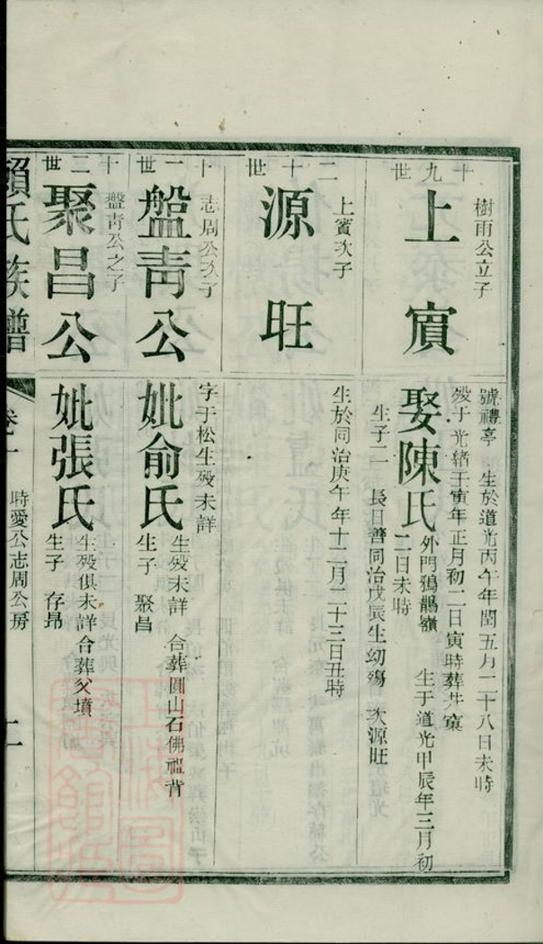 十九世
樹雨公立子
上賔
號禮亭 生於道光丙午年閏五月二十八日未時
歿于光緒壬寅年正月初二日寅時葬
娶陳氏
外門鴉鵲嶺 生于道光甲辰年三月初
二日未時
生子二 長日善同治戊辰生幼殤 次源旺
二十世
上賓次子
源旺
生於同治庚午年十二月二十三日丑時
十一世
志周公次子
盤靑公
字于松生歿未詳
妣俞氏
生歿未詳 合葬圓山石佛襤背
生子 聚昌
十二世
盤靑公之子
聚昌公
妣張氏
生歿俱未詳合葬父墳
生子 存昂
賴氏族譜
卷一
時愛公志周公房
二